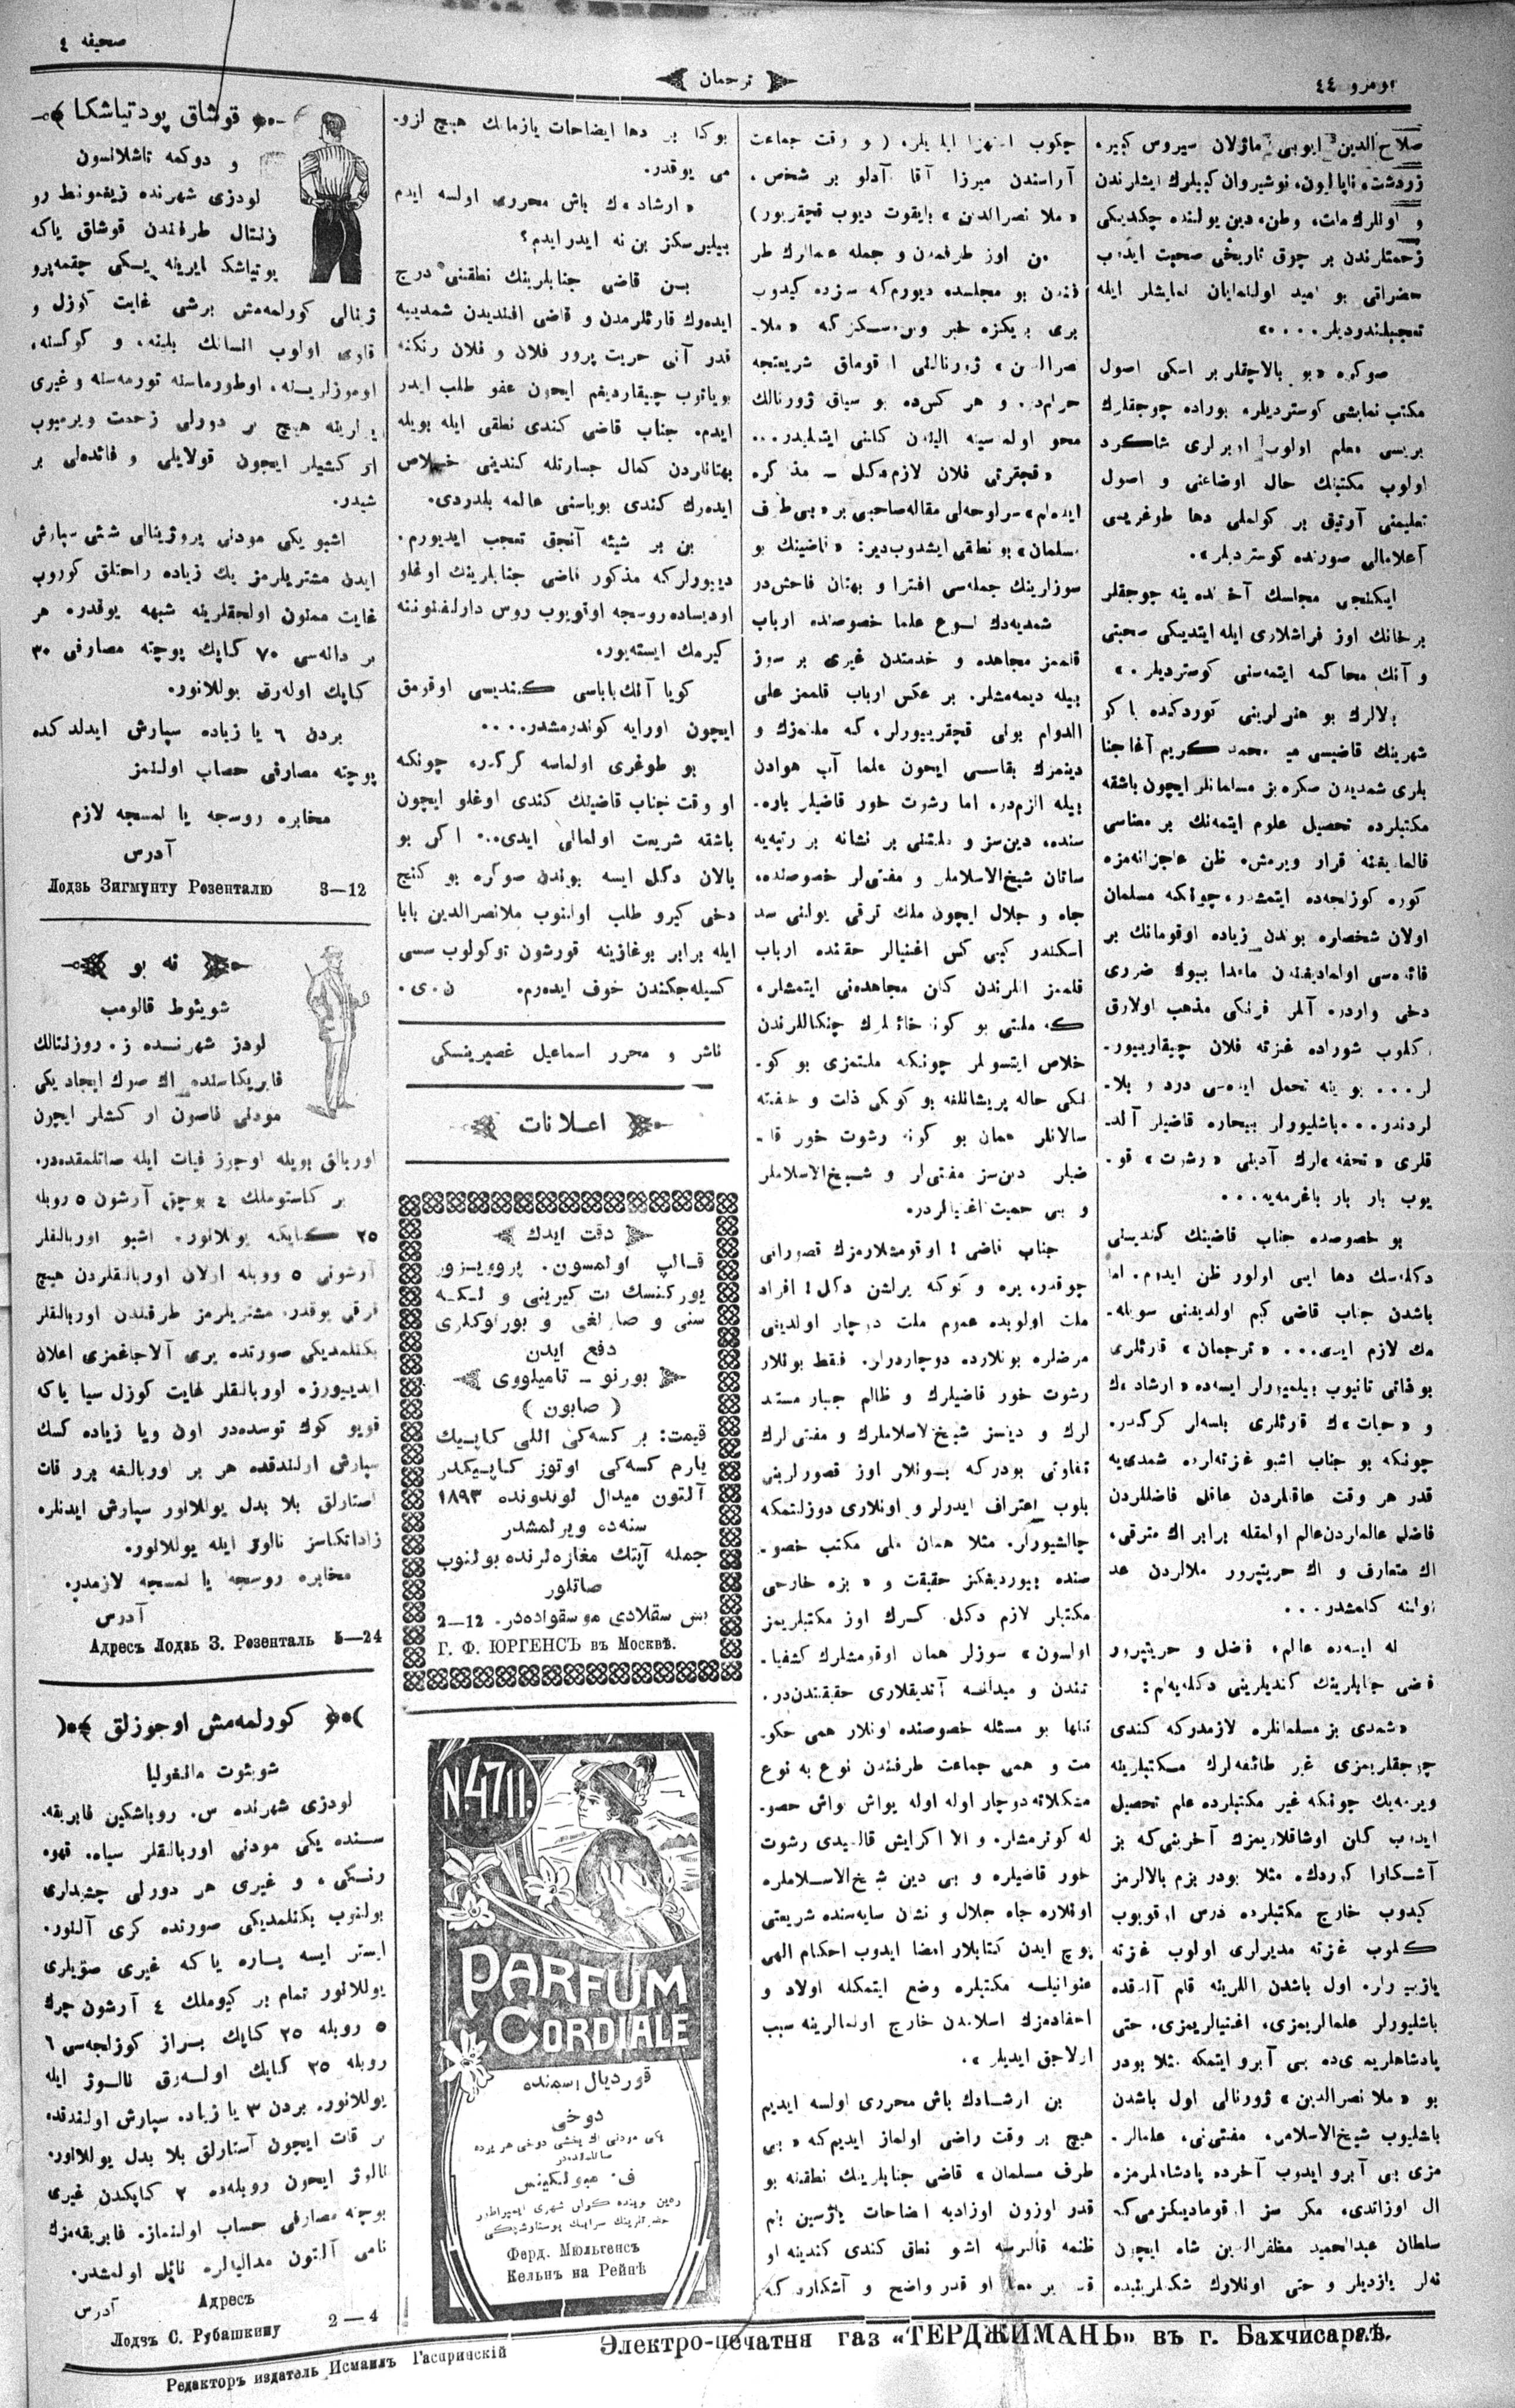 نومرو ٤٤
ترجمان
صحيفه ٤
صلاح الدين ايوبى، ماژلان سيروس كبير،
زردشت، ناپاليون، نوشيروان كبيلرك ايشلرندن
و اونلرك ملت، وطن، دين يولنده چكديكى
زحمتلرندن بر چوق تاريخى صحبت ايدوب
حضراتى بو اميد اولنمايان نمايشلر ايله
تعجبلندرديلر....»
صوكره «بو بالاچقلر بر اسكى اصول
مكتب نمايشى كوسترديلر، بوراده چوجقلرك
بريسى معلم اولوب اوبرلرى شاكرد
اولوب مكتبك حال اوضاعنى و اصول
تعليمنى آرتيق بر كولملى دها طوغريسى
آغلامالى صورتده كوسترديلر».
ايكنجى مجلسك آخرنده ينه چوجقلر
بر خانك اوز فراشلارى ايله ايتديكى صحبتى
و آنك محاكمه ايتمه‌سنى كوسترديلر.»
بالالرك بو هنرلرينى كوردكده باكو
شهرينك قاضيسى مير محمد كريم آغا جنا
بلرى شمديدن صكره بز مسلمانلر ايچون باشقه
مكتبلرده تحصيل علوم ايتمه‌نك بر معناسى
قالمايغنه قرار ويرمش. ظن عاجزانه‌مزه
كوره كوزلجه‌ده ايتمشدر، چونكه مسلمان
اولان شخصاره بوندن زياده اوقومانك بر
فائده‌سى اولماديغندن ماعدا بيوك ضررى
دخى واردر. آلمر فرنكى مذهب اولارق
كلوب شوراده غزته فلان چيقارييور-
لر... بو ينه تحمل ايده‌سى درد و بلا-
لردندر... باشليورلر بيچاره قاضيلر آلد-
قلرى «تحفه»لرك آدينى «رشوت» قو-
يوب بار بار باغرمه‌يه...
بو خصوصده جناب قاضينك كنديسنى
دكله‌سك دها ايى اولور ظن ايدرم. اما
باشدن جناب قاضى كيم اولديغنى سويله-
مك لازم ايدى... «ترجمان» قارئلرى
بو ذاتى تانيوب بيلميورلر ايسه‌ده «ارشاد»ك
و «حيات»ك قارئلرى بلسه‌لر كركدر.
چونكه بو جناب اشبو غزته‌لرده شمدى‌يه
قدر هر وقت عاقلردن عاقل فاضللردن
فاضل عالملردن عالم اولمقله برابر اك مترقى،
اك متعارف و اك حريتپرور ملالردن عد
اولنه كلمشدر...
نه ايسه‌ده عالم، فضل و حريتپرور
قاضى جنابلرينك كنديلرينى دكله‌يه‌لم:
«شمدى بز مسلمانلره لازمدركه كندى
چوجقلريمزى غير طائفه‌لرك مكتبلرينه
ويرمه‌يك چونكه غير مكتبلرده علم تحصيل
ايدوب كلن اوشاقلاريمزك آخرينى كه بز
آشكارا كوردك. مثلا بودر بزم بالالرمز
كيدوب خارج مكتبلرده درس اوقويوب
كلوب غزته مديرلرى اولوب غزته
يازييورلر. اول باشدن اللرينه قلم آلدقده
باشليورلر علمالريمزى، اغنيالريمزى، حتى
پادشاهلريمزى‌ده بى آبرو ايتمكه مثلا بودر
بو «ملا نصرالدين» ژورنالى اول باشدن
باشليوب شيخ‌الاسلامى، مفتى‌نى، علمالر-
مزى بى آبرو ايدوب آخرده پادشاهلرمزه
ال اوزاتدى، مكر سز اوقوماديكزمى كه
سلطان عبدالحميد مظفرالدين شاه ايچون
نه‌لر يازديلر و حتى اونلارك شكللرينيده
چكوب استهزا ايله‌ديلر. (و وقت جماعت
آراسندن ميرزا آقا آدلو بر شخص،
«ملا نصرالدين» بايقوت ديوب قچقريور)
من اوز طرفمدن و جمله علمالرك طر
فندن بو مجلسده ديورم كه سزده كيدوب
برى بريكزه خبر ويرسكز كه «ملا-
نصرالدين» ژورنالنى اوقوماق شريعتجه
حرامدر. و هر كس‌ده بو سياق ژورنالك
محو اولمه‌سينه اليندن كلنى ايتمليدر...
«قچقرتى فلان لازم دكل - مذاكره
ايده‌لم» سرلوحه‌لى مقاله صاحبى بر «بى طرف
مسلمان» بو نطقى ايشدوب دير: «قاضينك بو
سوزلرينك جمله‌سى افترا و بهتان فاحش‌در
شمديه‌دك نوع علما خصوصنده ارباب
قلممز مجاهده و خدمتدن غيرى بر سوز
بيله ديمه‌مشلر. بر عكس ارباب قلممز على
الدوام بونى قچقرييورلر، كه ملتمزك و
دينمزك بقاسى ايچون علما آب هوادن
بيله الزم‌در. اما رشوت خور قاضيلر باره-
سنده، دين‌سز و ملتنى بر نشانه بر رتبه‌يه
ساتان شيخ‌الاسلاملر و مفتى‌لر خصوصنده،
جاه و جلال ايچون ملك ترقى يولنى سد
اسكندر كبى كسن اغنيالر حقنده ارباب
قلممز اللرندن كلن مجاهده‌نى ايتمشلر،
كه ملتى بو كونه خائنلرك چنكاللرندن
خلاص ايتسونلر چونكه ملتمزى بو كو-
نكى حاله پريشانلغه بو كونكى ذات و خفته
سالانلر همان بو كونه رشوت خور قا-
ضيلر دين‌سز مفتى‌لر و شيخ‌الاسلاملر
و بى حميت اغنيالردر.
جناب قاضى! اوقومشلارمزك قصورانى
چوقدر، يره و كوكه يرلشن دكل! افراد
ملت اولوبده عموم ملت دوچار اولدينى
مرضلره بونلارده دوچاردرلر. فقط بونلار
رشوت خور قاضيلرك و ظالم جبار مستبد
لرك و دينسز شيخ‌الاسلاملرك و مفتى‌لرك
تفاوتى بودركه بونلار اوز قصورلرينى
بلوب اعتراف ايدرلر و اونلارى دوزلتمكه
چالشيورلر. مثلا همان ملى مكتب خصو-
صنده بيورديغكز حقيقت و «بزه خارجى
مكتبلر لازم دكل. كرك اوز مكتبلريمز
اولسون» سوزلر همان اوقومشلرك كشفيا-
تندن و ميدانه آتديقلارى حقيقتندن‌در.
تنها بو مسئله خصوصنده اونلار همى حكو-
مت و همى جماعت طرفندن نوع به نوع
مشكلاته دوچار اوله اوله يواش يواش حصو-
له كوترمشلر. و الا اكر ايش قالسيدى رشوت
خور قاضيلره و بى دين شيخ‌الاسلاملره
اونلاره جاه جلال و نشان سايه‌سنده شريعتى
پوچ ايدن كتابلار امضا ايدوب احكام الهى
عنوانيلسه مكتبلره وضع ايتمكله اولاد و
احفادمزك اسلامدن خارج اولمالرينه سبب
اولاجق ايديلر».
بن ارشادك باش محررى اولسه ايديم
هيچ بر وقت راضى اولماز ايديم كه «بى
طرف مسلمان» قاضى جنابلرينك نطقنه بو
قدر اوزون اوزاديه ايضاحات يازسين بنم
ظنمه قالورسه اشو نطق كندى كندينه او
قدر معنا او قدر واضح و آشكاردر كه
بوكا بر دها ايضاحات يازمانك هيچ لزو-
مى يوقدر.
«ارشاد»ك باش محررى اولسه ايدم
بيليرسكز بن نه ايدر ايدم؟
بن قاضى جنابلرينك نطقنى درج
ايده‌رك قارئلرمدن و قاضى افنديدن شمديه
قدر آنى حريت پرور فلان و فلان رنكنه
بويايوب چيقارديغم ايچون عفو طلب ايدر
ايدم. جناب قاضى كندى نطقى ايله بويله
بهتانلردن كمال جسارتله كندينى خلاص
ايده‌رك كندى بوياسنى عالمه بلدردى.
بن بر شيئه آنجق تعجب ايديورم.
ديبورلركه مذكور قاضى جنابلرينك اوغلو
اوديساده روسجه اوقويوب روس دارلفنوننه
كيرمك ايسته‌يور.
كويا آنك باباسى كنديسى اوقومق
ايچون اورايه كوندرمشدر....
بو طوغرى اولماسه كركدر، چونكه
او وقت جناب قاضينك كندى اوغلو ايچون
باشقه شريعت اولمالى ايدى... اكر بو
يالان دكل ايسه بوندن صوكره بو كنج
دخى كيرو طلب اولنوب ملانصرالدين بابا
ايله برابر بوغازينه قورشون توكولوب سسى
كسيله‌جكندن خوف ايده‌رم. ن.ى.
ناشر و محرر اسماعيل غصپرينسكى
اعلانات
دقت ايدك
قالپ اولمسون. پروويزور
يوركنسك بت كيرينى و لكه
سنى و صارلغى و بورلوكلرى
دفع ايدن
بورنو - تاميلووى
(صابون)
قيمت: بر كسه‌كى اللى كاپيك
يارم كسه‌كى اوتوز كاپيكدر
آلتون ميدال لوندونده ١٨٩٣
سنه‌ده ويرلمشدر
جمله آپتك مغازه‌لرنده بولنوب
صاتلور
باش سقلادى موسقواده‌در. 2—12
Г. Ф. ЮРГЕНСЪ въ Москвѣ.
N. 4711.
PARFUM
CORDIALE
قورديال اسمنده
دوخى
يكى مودنى اك يخشى دوخى هر يرده
صاتلماقده‌در
ف. ميولكينس
Ферд. Мюльгенсъ
Кельнъ на Рейнѣ
قوشاق پودتياشكا
و دوكمه تاشلانسون
لودزى شهرنده زيغمونط رو
زنتال طرفندن قوشاق ياكه
پوتياشكه ايرينه يسكى چقمه پرو
ژينالى كورلمه‌مش برشى غايت كوزل و
قاوى اولوب انسانك بلينه، و كوكسنه،
اوموزلرينه، اوطورماسنه تورمه‌سنه و غيرى
يرلرينه هيچ بر دورلى زحمت ويرميوب
ار كشيلر ايچون قولايلى و فائده‌لى بر
شيدر.
اشبو يكى مودنى پروژينالى شئى سپارش
ايدن مشتريلرمز پك زياده راحتلق كوروپ
غايت ممنون اولجقلرينه شبهه يوقدر. هر
بر دانه‌سى ٧٠ كپك پوچته مصارفى ٣٠
كپك اوله‌رق يوللانور.
بردن ٦ يا زياده سپارش ايدلدكده
پوچته مصارفى حساب اولنمز
مخابره روسجه يا نمسجه لازم
آدرس
Лодзь Зигмунту Розенталю 3—12
نه بو
شويتوط قالومب
لودز شهرنده ز. روزنتالك
فابريكاسنده اك صوك ايجاد يكى
مودنى فاصون ار كشلر ايچون
اوربالق بويله اوجوز فيات ايله صاتلمقده‌در.
بر كاستوملك ٤ بوچق آرشون ٥ روبله
٢٥ كاپكه يوللانور. اشبو اوربالقلر
آرشونى ٥ روبله اولان اوربالقلردن هيچ
فرقى يوقدر. مشتريلرمز طرفندن اوربالقلر
بكنلمديكى صورتده يرى آلاجاغمزى اعلان
ايدييورز. اوربالقلر غايت كوزل سيا ياكه
قويو كوك توسده‌در اون ويا زياده كسك
سپارش اولندقده هر بر اوربالغه برر قات
استارلق بلا بدل يوللانور سپارش ايدنلره
زاداتكاسز نالوژ ايله يوللانور.
مخابره روسجه يا نمسجه لازمدر.
آدرس
Адресъ Лодзь З. Розенталь 5—24
كورلمه‌مش اوجوزلق
شويتوت مانغوليا
لودزى شهرنده س. روباشكين فابريقه-
سنده يكى مودنى اوربالقلر سياه، قهوه
رنكى، و غيرى هر دورلى چشيدلرى
بولنوب بكنلمديكى صورتده كرى آلنور.
ايستر ايسه پاره ياكه غيرى صتويلرى
يوللانور تمام بر كيوملك ٤ آرشون چرك
٥ روبله ٢٥ كپك براز كوزلجه‌سى ٦
روبله ٢٥ كپك اوله‌رق نالوژ ايله
يوللانور. بردن ٣ يا زياده سپارش اولندقده
بر قات ايچون آستارلق بلا بدل يوللانور.
نالوژ ايچون روبله‌ده ٢ كاپكدن غيرى
پوچته مصارفى حساب اولنماز. فابريقه‌مزك
نامى آلتون مداليالره نائل اولمشدر.
Адресъ آدرس
Лодзь С. Рубашкину 2—4
Редакторъ издатель Исмаилъ Гаспринскій
Электро-печатня газ. «ТЕРДЖИМАНЪ» въ г. Бахчисараѣ.